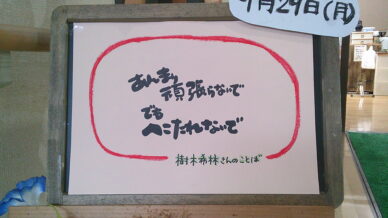 月29日(月)
あんまり
頑張らないで
でも
へこたれないで
樹木希林さんのことば